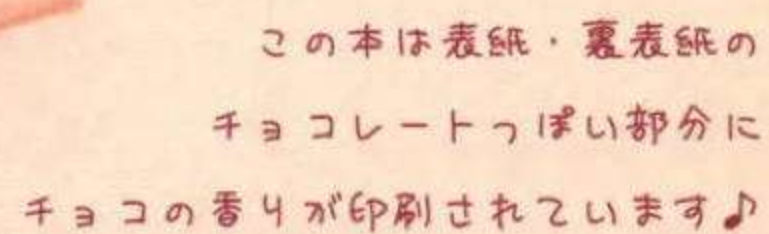 この本は表紙・裏表紙の
チョコレートっぽい部分に
チョコの香りが印刷されています♪